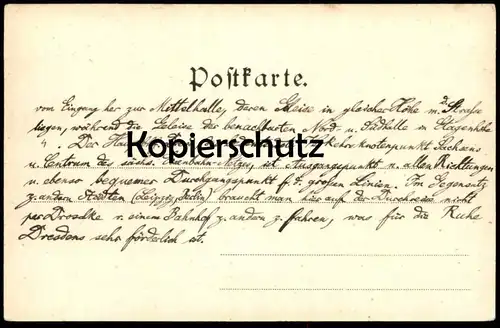 Postkarte.
vom Eingang her zur Mittelhalle, deren Gleise in gleicher Höhe m. d. Straße
liegen, während die Geleise der benachbarten Nord- u. Südhalle in Etagenhöhe
". Der Verkehrsknotenpunkt Sachsens
Kopierschutz
u. Centrum des sächs. Eisenbahn-Netzes ist Ausgangspunkt n. allen Richtungen
u. ebenso bequemer Durchgangspunkt f. d. großen Linien. Im Gegensatz
z. andern Städten (Leipzig, Berlin) braucht man hier auf der Durchreise nicht
per Droschke v. einem Bahnhof z. andern z. fahren, was für die Ruhe
Dresdens sehr förderlich ist.